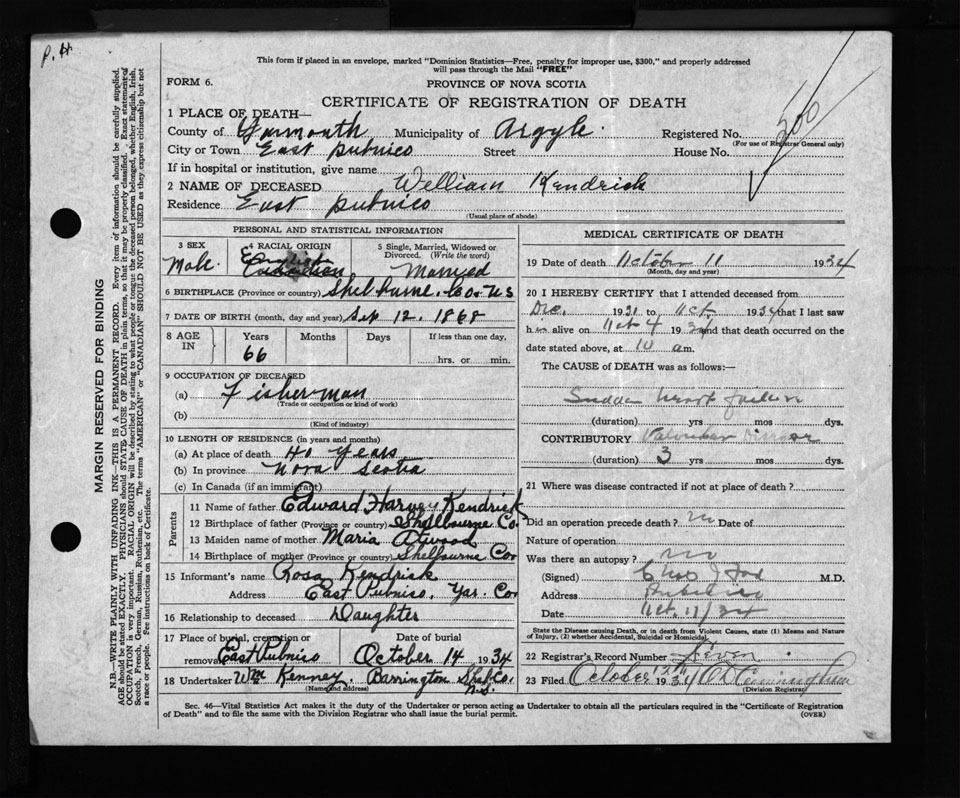 P. 4
This form if placed in an envelope, marked "Dominion Statistics—Free, penalty for improper use, $300," and properly addressed
will pass through the Mail "FREE"
FORM 6.
PROVINCE OF NOVA SCOTIA
CERTIFICATE OF REGISTRATION OF DEATH
1 PLACE OF DEATH—
County of Yarmouth Municipality of Argyle. Registered No.
(For use of Registrar General only)
City or Town East Pubnico Street House No.
If in hospital or institution, give name
2 NAME OF DECEASED William Kendrick
Residence East Pubnico
(Usual place of abode)
PERSONAL AND STATISTICAL INFORMATION
3 SEX 4 RACIAL ORIGIN 5 Single, Married, Widowed or
Divorced. (Write the word)
Male. English Canadian Marryed
6 BIRTHPLACE (Province or country) Shelburne. Co. NS
7 DATE OF BIRTH (month, day and year) Sep 12. 1868
8 AGE IN Years Months Days If less than one day,
66 hrs. or min.
9 OCCUPATION OF DECEASED
(a) Fisherman
(Trade or occupation or kind of work)
(b)
(Kind of industry)
10 LENGTH OF RESIDENCE (in years and months)
(a) At place of death 40 years
(b) In province Nova Scotia
(c) In Canada (if an immigrant)
Parents
11 Name of father Edward Harvey Kendrick
12 Birthplace of father (Province or country) Shellbourne Co
13 Maiden name of mother Maria Atwood
14 Birthplace of mother (Province or country) Shelburne Co
15 Informant's name Rosa Kendrick
Address East Pubnico, Yar. Co
16 Relationship to deceased Daughter
17 Place of burial, cremation or removal Date of burial
East Pubnico October 14 1934
18 Undertaker Wm Kenney. Barrington Shel. Co. N.S.
(Name and address)
MEDICAL CERTIFICATE OF DEATH
19 Date of death October 11 1934
(Month, day and year)
20 I HEREBY CERTIFY that I attended deceased from
Dec. 1931 to Oct 1934 that I last saw
him alive on Oct 4 1934 and that death occurred on the
date stated above, at 10 am.
The CAUSE OF DEATH was as follows:—
Sudden heart failure
(duration) yrs mos dys.
CONTRIBUTORY Valvular Disease
(duration) 3 yrs mos dys.
21 Where was disease contracted if not at place of death?
Did an operation precede death? no Date of
Nature of operation
Was there an autopsy? no
(Signed) Chas J Fox M.D.
Address Pubnico
Date Oct. 11/34
State the Disease causing Death, or in death from Violent Causes, state (1) Means and Nature
of Injury, (2) whether Accidental, Suicidal or Homicidal.
22 Registrar's Record Number Seven
23 Filed October 1934 Cunningham
(Division Registrar)
Sec. 46—Vital Statistics Act makes it the duty of the Undertaker or person acting as Undertaker to obtain all the particulars required in the "Certificate of Registration
of Death" and to file the same with the Division Registrar who shall issue the burial permit.
(OVER)
MARGIN RESERVED FOR BINDING
N.B.—WRITE PLAINLY WITH UNFADING INK—THIS IS A PERMANENT RECORD. Every item of information should be carefully supplied.
AGE should be stated EXACTLY. PHYSICIANS should STATE CAUSE OF DEATH in plain terms, so that it may be properly classified. Exact statement of
OCCUPATION is very important. RACIAL ORIGIN will be described by stating to what people or tongue the deceased person belonged, whether English, Irish,
Scotch, French, German, Russian, Ruthenian, etc. The terms "AMERICAN" or "CANADIAN" SHOULD NOT BE USED as they express citizenship but not
a race or people. Fee instructions on back of Certificate.